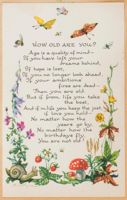 HOW OLD ARE YOU?
Age is a quality of mind—
If you have left your
dreams behind,
If hope is lost,
If you no longer look ahead,
If your ambitions'
fires are dead—
Then you are old.
But if from life you take
the best,
And if in life you keep the jest,
If love you hold—
No matter how the
years go by,
No matter how the
birthdays fly,
You are not old.